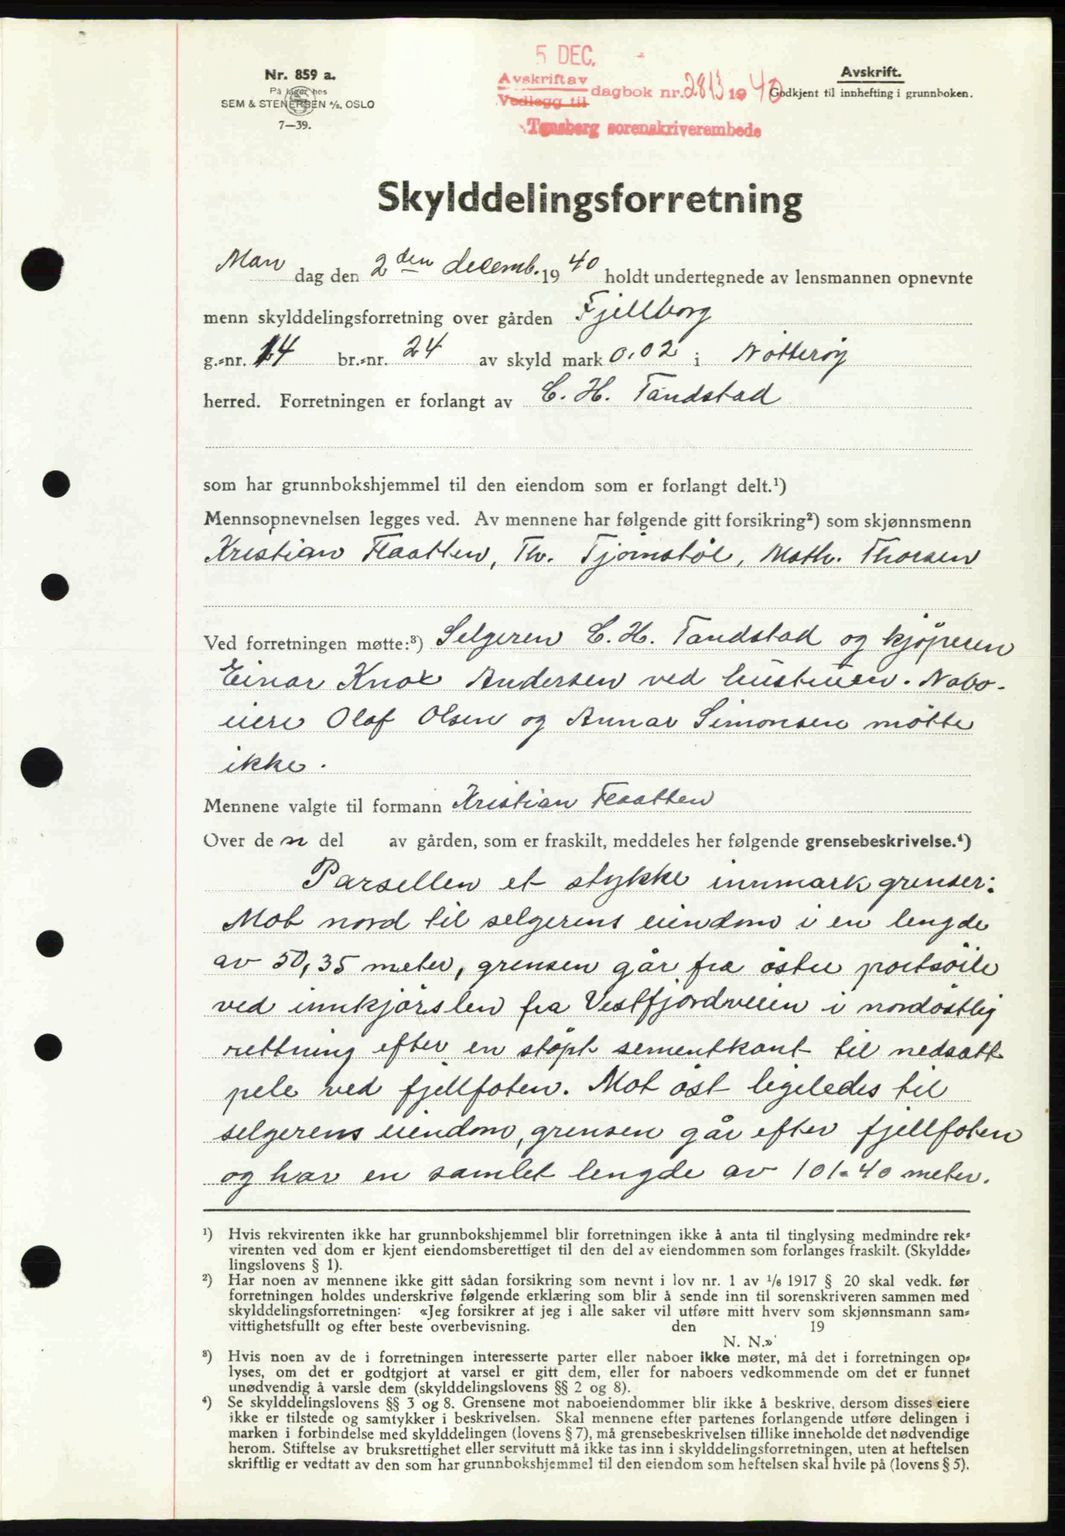 5 DEC.
Nr. 859 a.
På lager hos
SEM & STENERSEN A/S. OSLO
7—39.
Avskrift av
Vedlegg til
dagbok nr. 2813 1940
Tønsberg sorenskriverembede
Avskrift.
Godkjent til innhefting i grunnboken.
Skylddelingsforretning
Man dag den 2den decemb. 1940 holdt undertegnede av lensmannen opnevnte
menn skylddelingsforretning over gården Fjellborg
g.-nr. 14 br.-nr. 24 av skyld mark 0,02 i Nøtterøy
herred. Forretningen er forlangt av C. H. Tandstad
som har grunnbokshjemmel til den eiendom som er forlangt delt.¹)
Mennsopnevnelsen legges ved. Av mennene har følgende gitt forsikring²) som skjønnsmenn
Kristian Flaatten, Th. Tjømstøl, Math. Thorsen
Ved forretningen møtte:³) Selgeren C. H. Tandstad og kjøperen
Einar Knox Andersen ved hustruen. Nabo-
eiere Olaf Olsen og Annar Simonsen møtte
ikke.
Mennene valgte til formann Kristian Flaatten
Over de n del av gården, som er fraskilt, meddeles her følgende grensebeskrivelse.⁴)
Parsellen et stykke innmark grenser:
Mot nord til selgerens eiendom i en lengde
av 50,35 meter, grensen går fra østre portsøile
ved innkjørslen fra Vestfjordveien i nordøstlig
rettning efter en støpt sementkant til nedsatt
pele ved fjellfoten. Mot øst ligeledes til
selgerens eiendom, grensen går efter fjellfoten
og har en samlet lengde av 101.40 meter.
¹) Hvis rekvirenten ikke har grunnbokshjemmel blir forretningen ikke å anta til tinglysing medmindre rek-
virenten ved dom er kjent eiendomsberettiget til den del av eiendommen som forlanges fraskilt. (Skyldde-
lingslovens § 1).
²) Har noen av mennene ikke gitt sådan forsikring som nevnt i lov nr. 1 av 1/6 1917 § 20 skal vedk. før
forretningen holdes underskrive følgende erklæring som blir å sende inn til sorenskriveren sammen med
skylddelingsforretningen: «Jeg forsikrer at jeg i alle saker vil utføre mitt hverv som skjønnsmann sam-
vittighetsfullt og efter beste overbevisning. den 19
N. N.»
³) Hvis noen av de i forretningen interesserte parter eller naboer ikke møter, må det i forretningen op-
lyses, om det er godtgjort at varsel er gitt dem, eller for naboers vedkommende om det er funnet
unødvendig å varsle dem (skylddelingslovens §§ 2 og 8).
⁴) Se skylddelingslovens §§ 3 og 8. Grensene mot naboeiendommer blir ikke å beskrive, dersom disses eiere
ikke er tilstede og samtykker i beskrivelsen. Skal mennene efter partenes forlangende utføre delingen i
marken i forbindelse med skylddelingen (lovens § 7), må grensebeskrivelsen tillike inneholde det nødvendige
herom. Stiftelse av bruksrettighet eller servitutt må ikke tas inn i skylddelingsforretningen, uten at heftelsen
skriftlig er vedtatt av den som har grunnbokshjemmel til den eiendom som heftelsen skal hvile på (lovens § 5).